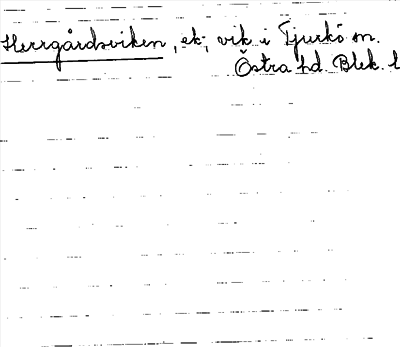 Herrgårdsviken, ek; vik i Tjurkö sn.
Östra hd. Blek. l